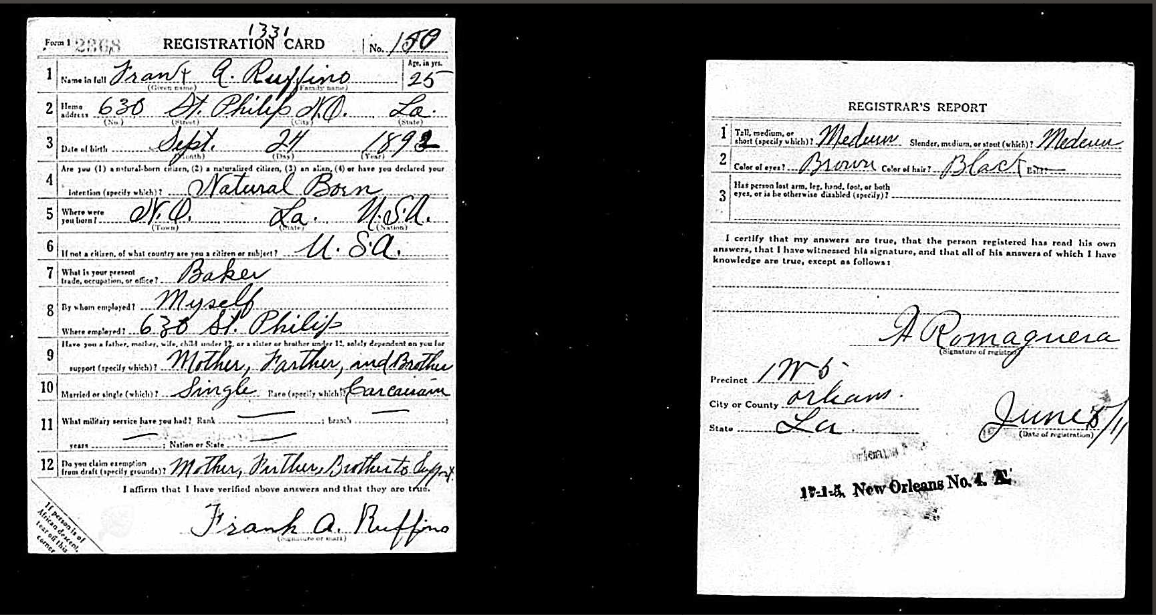 1331
Form 1 2368 REGISTRATION CARD No. 150
1 Name in full Frank A. Ruffino Age, in yrs. 25
(Given name) (Family name)
2 Home address 630 St. Philip N.O. La.
(No.) (Street) (City) (State)
3 Date of birth Sept. 24 1892
(Month) (Day) (Year)
Are you (1) a natural-born citizen, (2) a naturalized citizen, (3) an alien, (4) or have you declared your
4 intention (specify which)? Natural Born
5 Where were you born? N.O. La. U.S.A.
(Town) (State) (Nation)
6 If not a citizen, of what country are you a citizen or subject? U.S.A.
7 What is your present trade, occupation, or office? Baker
8 By whom employed? Myself
Where employed? 630 St. Philip
Have you a father, mother, wife, child under 12, or a sister or brother under 12, solely dependent on you for
9 support (specify which)? Mother, Farther, and Brother
10 Married or single (which)? Single Race (specify which)? Carcausain
11 What military service have you had? Rank ; branch ;
years ; Nation or State
12 Do you claim exemption from draft (specify grounds)? Mother, Farther, Brother to Support.
I affirm that I have verified above answers and that they are true.
Frank A. Ruffino
(Signature or mark)
If person is of
African descent,
tear off this
corner
REGISTRAR'S REPORT
1 Tall, medium, or short (specify which)? Medeum Slender, medium, or stout (which)? Medeum
2 Color of eyes? Brown Color of hair? Black
3 Has person lost arm, leg, hand, foot, or both eyes, or is he otherwise disabled (specify)?
I certify that my answers are true, that the person registered has read his own
answers, that I have witnessed his signature, and that all of his answers of which I have
knowledge are true, except as follows:
A Romaguera
(Signature of registrar)
Precinct 1 W 5
City or County Orleans.
State La June 5/17
(Date of registration)
17-1-5. New Orleans No. 4. A.